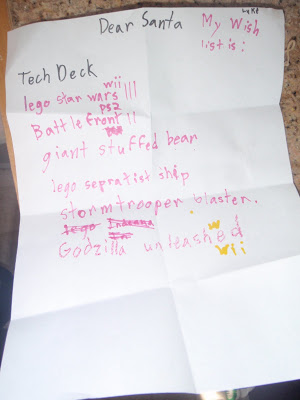 Dear Santa My Wish
list is:
Tech Deck
wii
lego star wars III
PS2
Battle front II
giant stuffed bear
lego sepratist ship
stormtrooper blaster.
lego Indeana
Godzilla unleashed
Wii